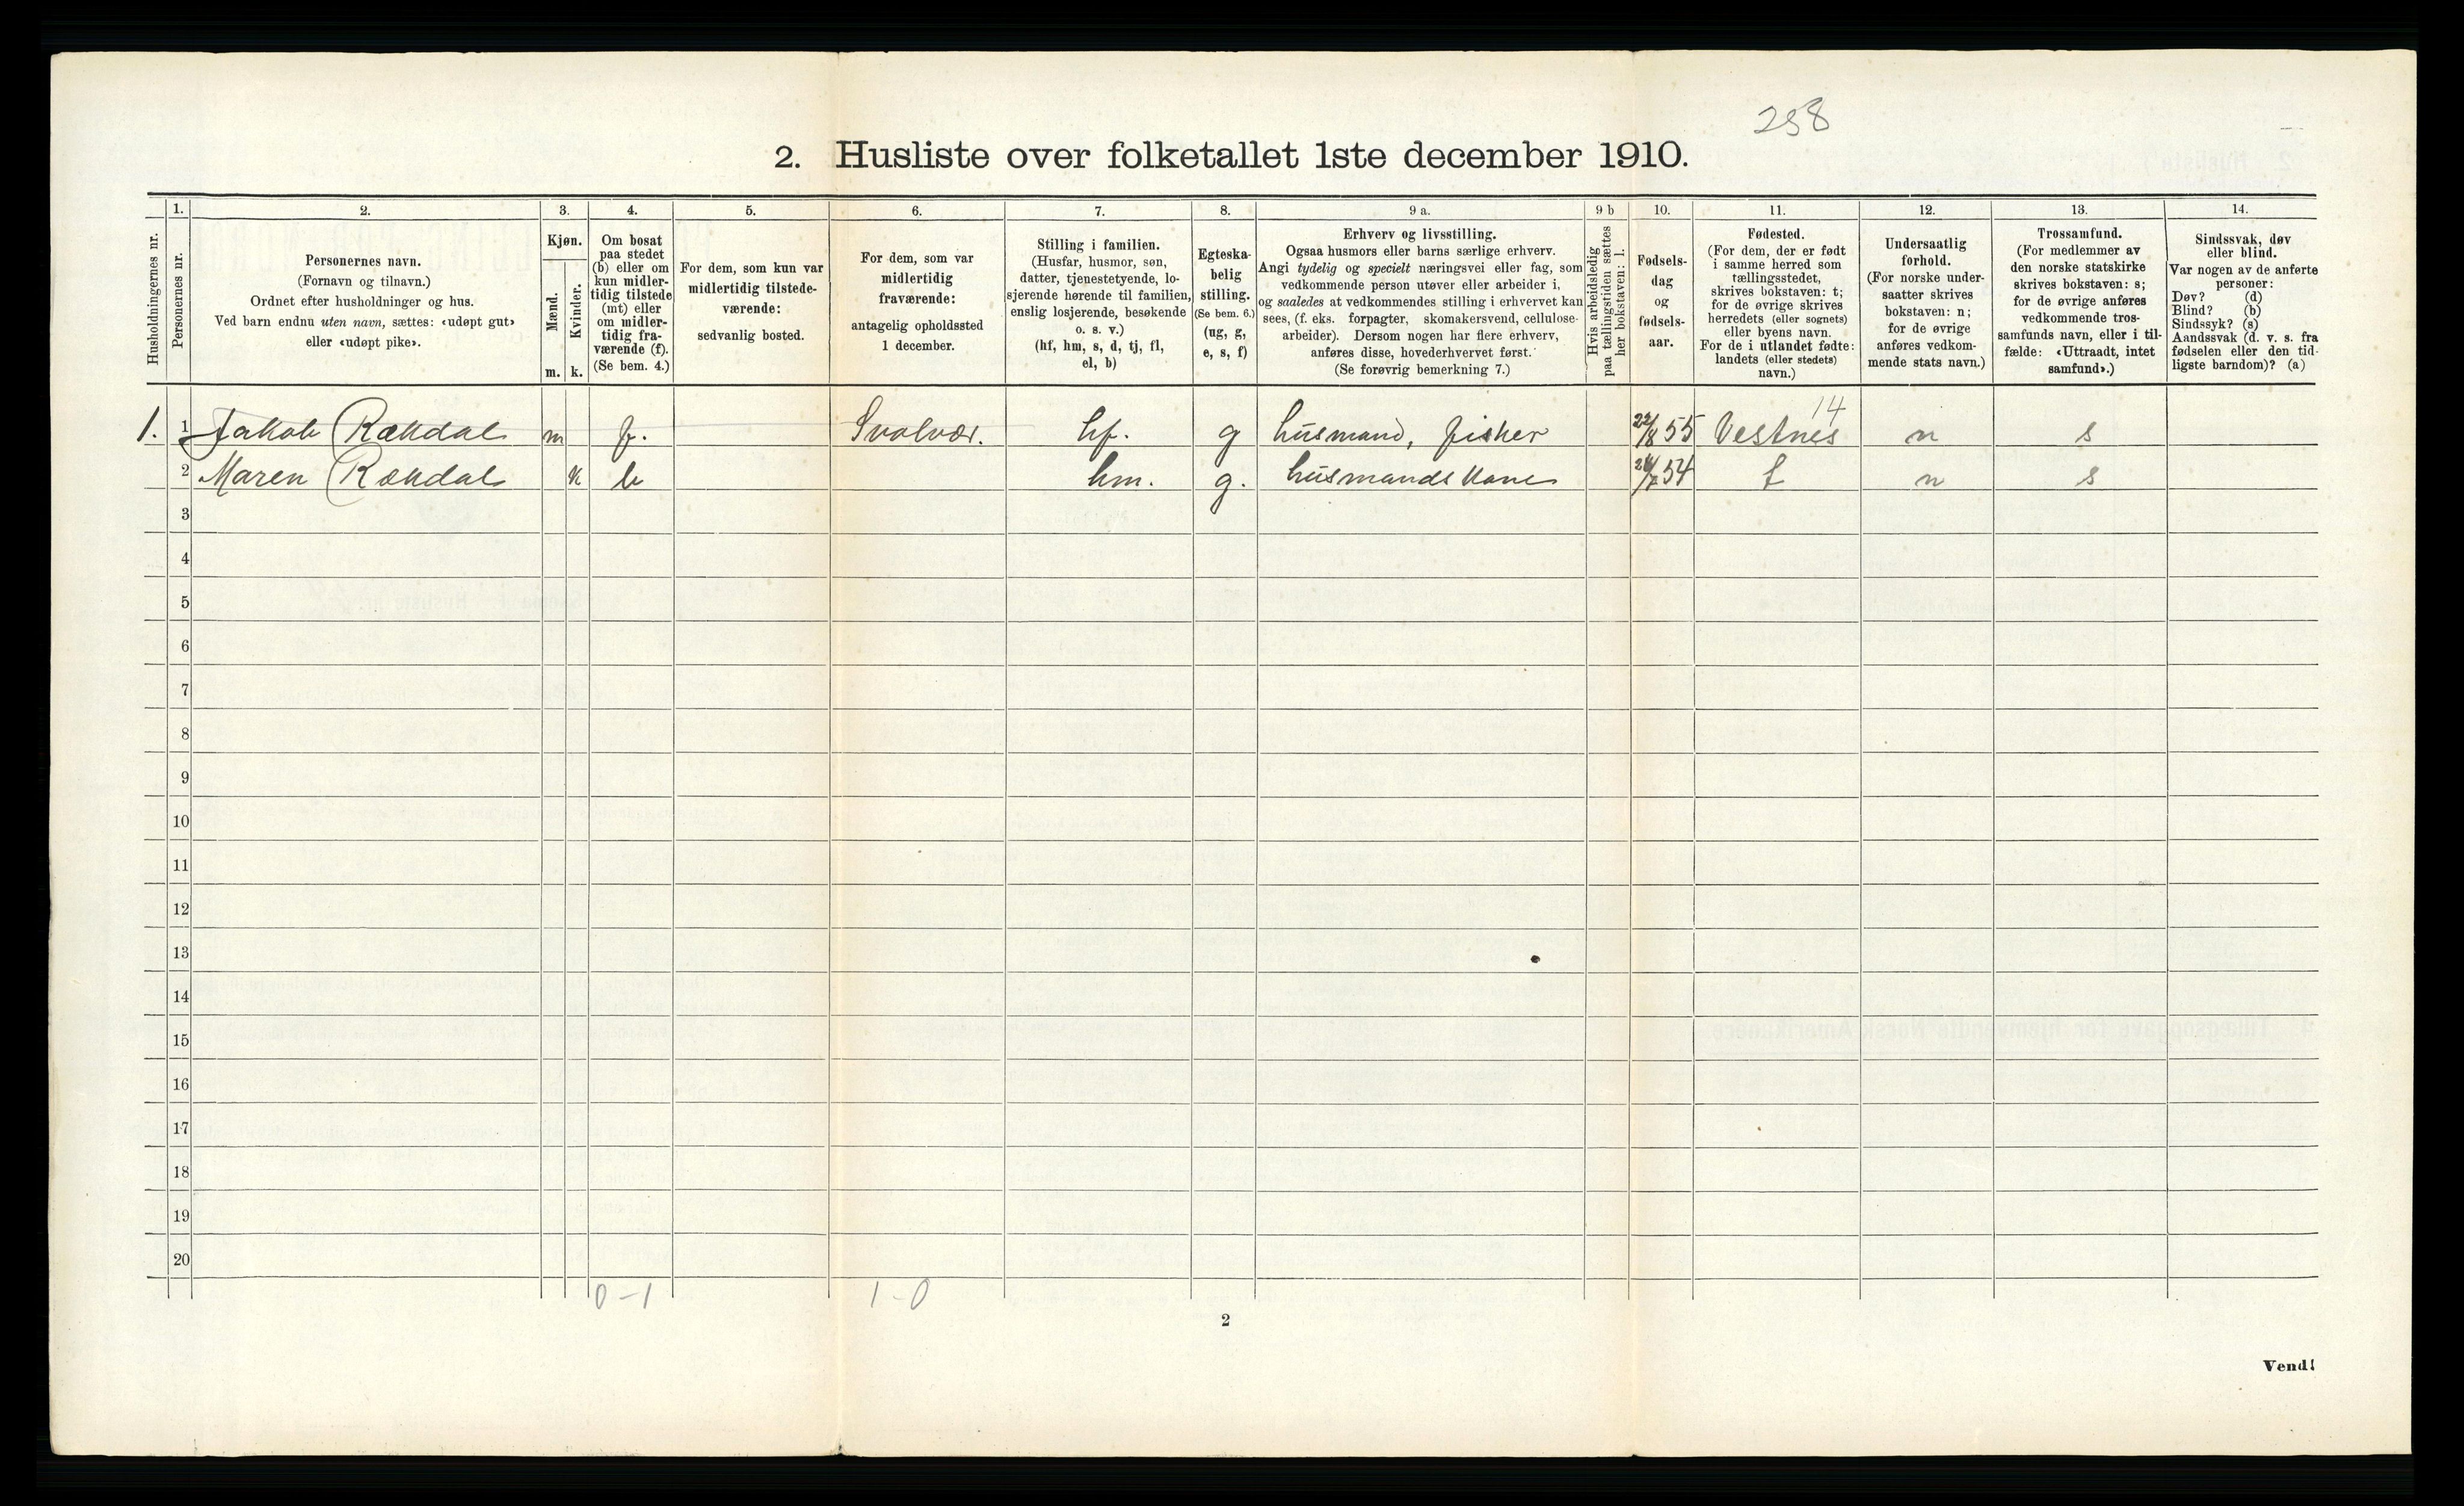 258
2. Husliste over folketallet 1ste december 1910.
Husholdningernes nr.
1.
Personernes nr.
2.
Personernes navn.
(Fornavn og tilnavn.)
Ordnet efter husholdninger og hus.
Ved barn endnu uten navn, sættes: «udøpt gut»
eller «udøpt pike».
3.
Kjøn.
Mænd.
Kvinder.
m. k.
4.
Om bosat
paa stedet
(b) eller om
kun midler-
tidig tilstede
(mt) eller
om midler-
tidig fra-
værende (f).
(Se bem. 4.)
5.
For dem, som kun var
midlertidig tilstede-
værende:
sedvanlig bosted.
6.
For dem, som var
midlertidig
fraværende:
antagelig opholdssted
1 december.
7.
Stilling i familien.
(Husfar, husmor, søn,
datter, tjenestetyende, lo-
sjerende hørende til familien,
enslig losjerende, besøkende
o. s. v.)
(hf, hm, s, d, tj, fl,
el, b)
8.
Egteska-
belig
stilling.
(Se bem. 6.)
(ug, g,
e, s, f)
9 a.
Erhverv og livsstilling.
Ogsaa husmors eller barns særlige erhverv.
Angi tydelig og specielt næringsvei eller fag, som
vedkommende person utøver eller arbeider i,
og saaledes at vedkommendes stilling i erhvervet kan
sees, (f. eks. forpagter, skomakersvend, cellulose-
arbeider). Dersom nogen har flere erhverv,
anføres disse, hovederhvervet først.
(Se forøvrig bemerkning 7.)
9 b
Hvis arbeidsledig
paa tællingstiden sættes
her bokstaven: l.
10.
Fødsels-
dag
og
fødsels-
aar.
11.
Fødested.
(For dem, der er født
i samme herred som
tællingsstedet,
skrives bokstaven: t;
for de øvrige skrives
herredets (eller sognets)
eller byens navn.
For de i utlandet fødte:
landets (eller stedets)
navn.)
12.
Undersaatlig
forhold.
(For norske under-
saatter skrives
bokstaven: n;
for de øvrige
anføres vedkom-
mende stats navn.)
13.
Trossamfund.
(For medlemmer av
den norske statskirke
skrives bokstaven: s;
for de øvrige anføres
vedkommende tros-
samfunds navn, eller i til-
fælde: «Uttraadt, intet
samfund».)
14.
Sindssvak, døv
eller blind.
Var nogen av de anførte
personer:
Døv? (d)
Blind? (b)
Sindssyk? (s)
Aandssvak (d. v. s. fra
fødselen eller den tid-
ligste barndom)? (a)
14
1. 1 Jakob Rækdal m f. Svolvær. hf. g husmand, fisker 22/8 55 Vestnes n s
2 Maren Rækdal k b hm. g. husmandskone 54 t n s
3
4
5
6
7
8
9
10
11
12
13
14
15
16
17
18
19
20
0-1 1-0
2
Vend!